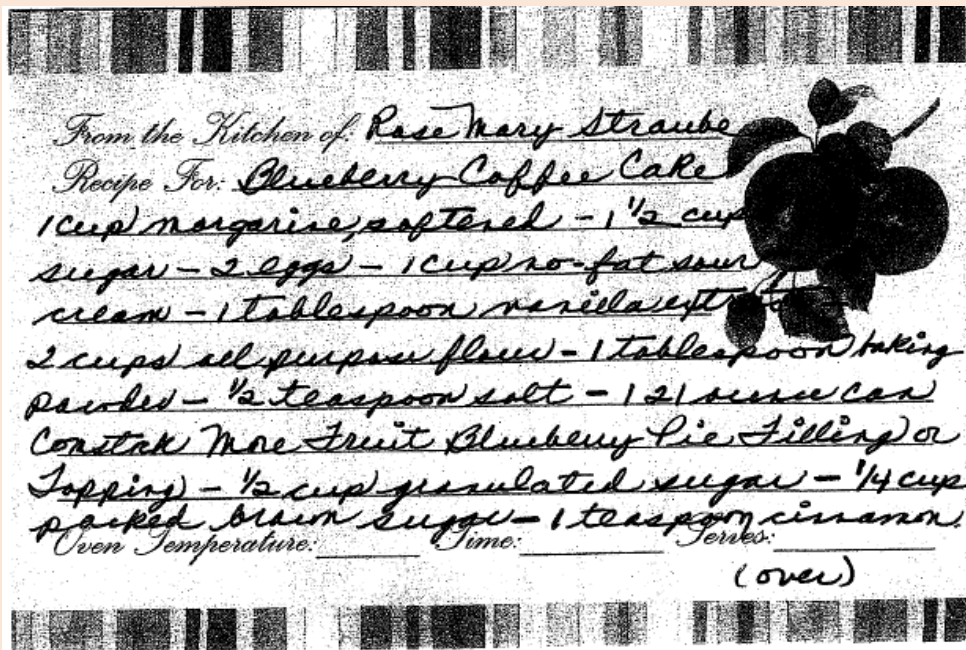 From the Kitchen of: Rose Mary Straube
Recipe For: Blueberry Coffee Cake
1 cup margarine, softened - 1 1/2 cup
sugar - 2 eggs - 1 cup no-fat sour
cream - 1 tablespoon vanilla extract
2 cups all purpose flour - 1 tablespoon baking
powder - 1/2 teaspoon salt - 1 21 ounce can
Comstock More Fruit Blueberry Pie Filling or
Topping - 1/2 cup granulated sugar - 1/4 cup
packed brown sugar - 1 teaspoon cinnamon.
Oven Temperature: Time: Serves:
(over)